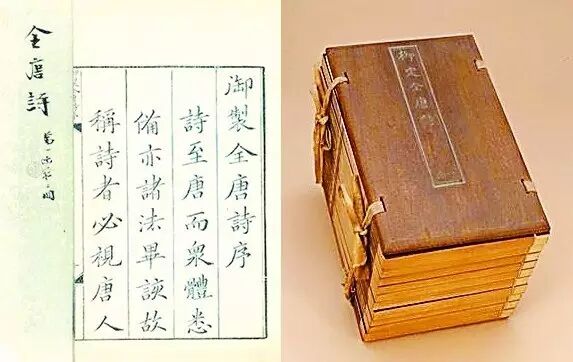 全唐詩
御製全唐詩序
詩至唐而衆體悉
備亦諸法畢該故
稱詩者必視唐人
御定全唐詩